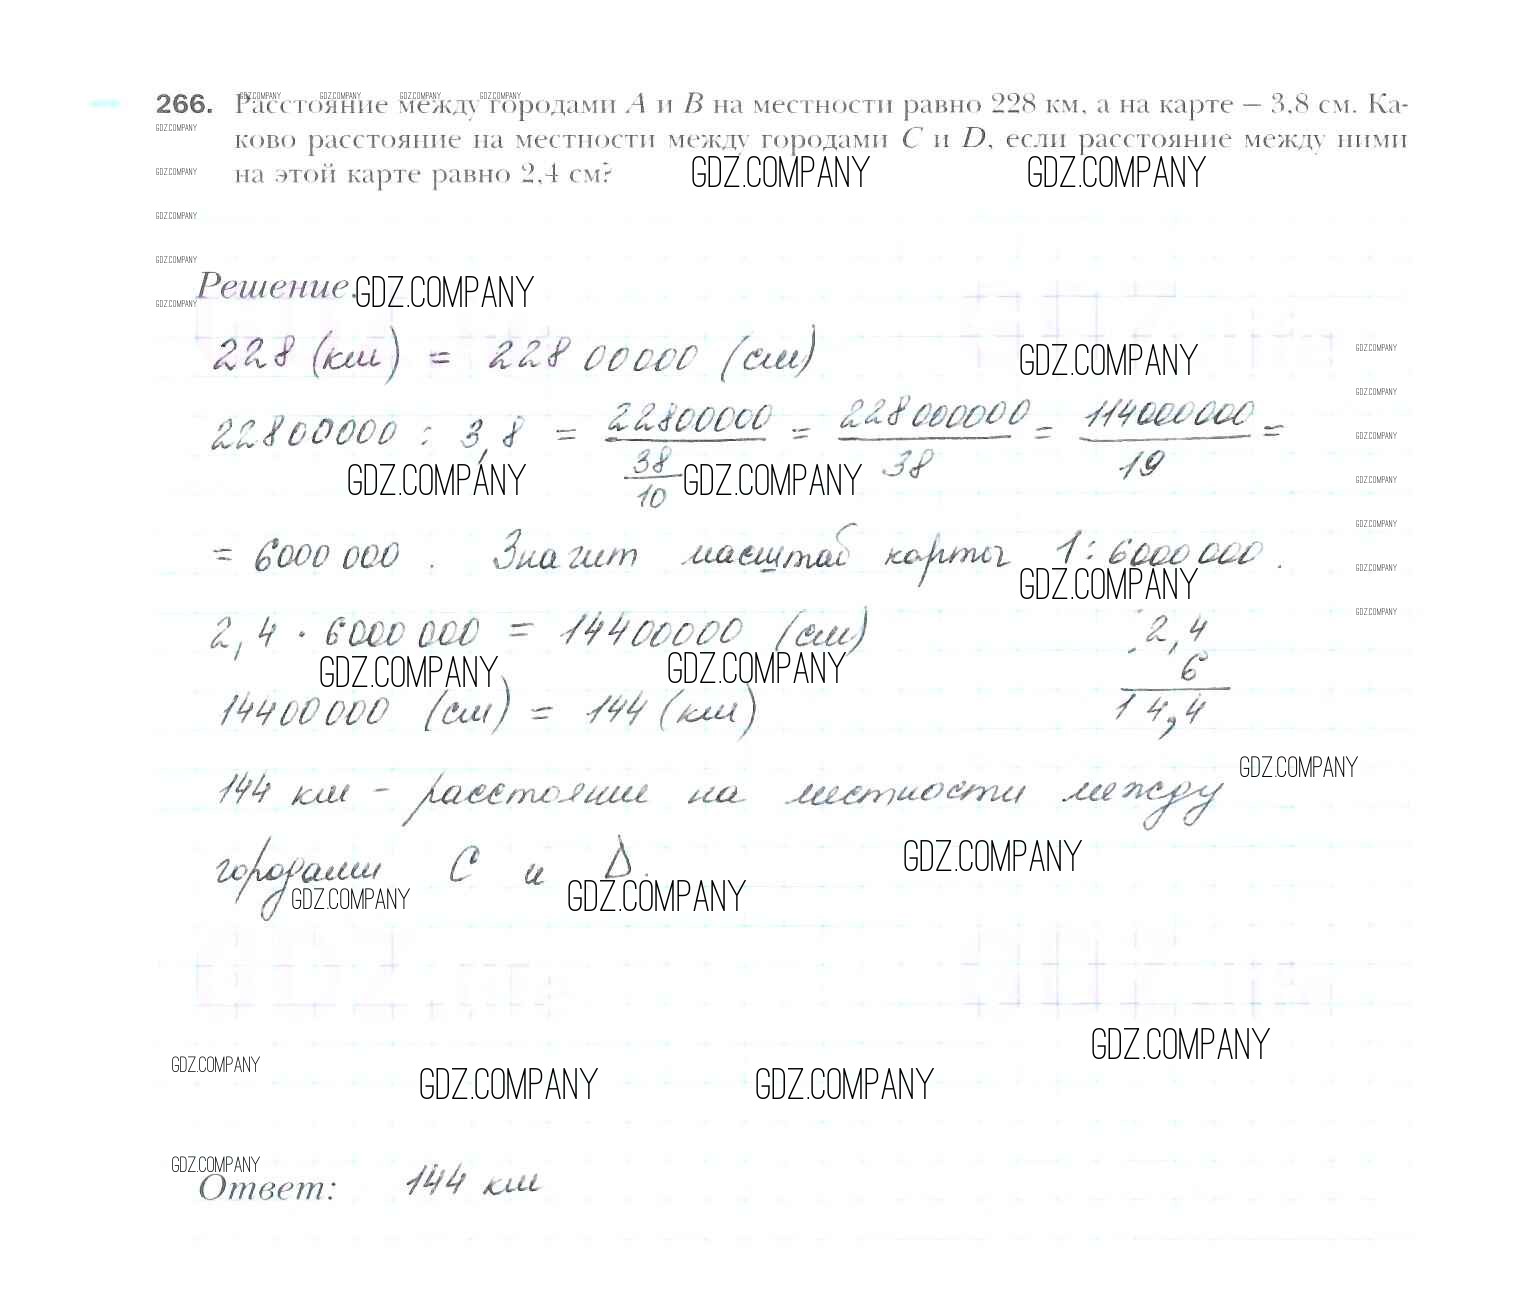 266. Расстояние между городами A и B на местности равно 228 км, а на карте — 3,8 см. Ка-
ково расстояние на местности между городами C и D, если расстояние между ними
на этой карте равно 2,4 см?
GDZ.COMPANY GDZ.COMPANY GDZ.COMPANY GDZ.COMPANY
GDZ.COMPANY
GDZ.COMPANY GDZ.COMPANY GDZ.COMPANY
GDZ.COMPANY
GDZ.COMPANY
Решение. GDZ.COMPANY
GDZ.COMPANY
228 (км) = 22800000 (см)
GDZ.COMPANY GDZ.COMPANY
GDZ.COMPANY
22800000 : 3,8 = 22800000 / 38/10 = 228000000 / 38 = 114000000 / 19 =
GDZ.COMPANY
GDZ.COMPANY GDZ.COMPANY GDZ.COMPANY
GDZ.COMPANY
= 6000 000 . Значит масштаб карты 1 : 6000 000 .
GDZ.COMPANY GDZ.COMPANY
GDZ.COMPANY
2,4 · 6000 000 = 14400000 (см) 2,4
GDZ.COMPANY GDZ.COMPANY 6
14400000 (см) = 144 (км) 14,4
GDZ.COMPANY
144 км - расстояние на местности между
городами C и D.
GDZ.COMPANY
GDZ.COMPANY GDZ.COMPANY
GDZ.COMPANY
GDZ.COMPANY GDZ.COMPANY GDZ.COMPANY
GDZ.COMPANY
Ответ: 144 км